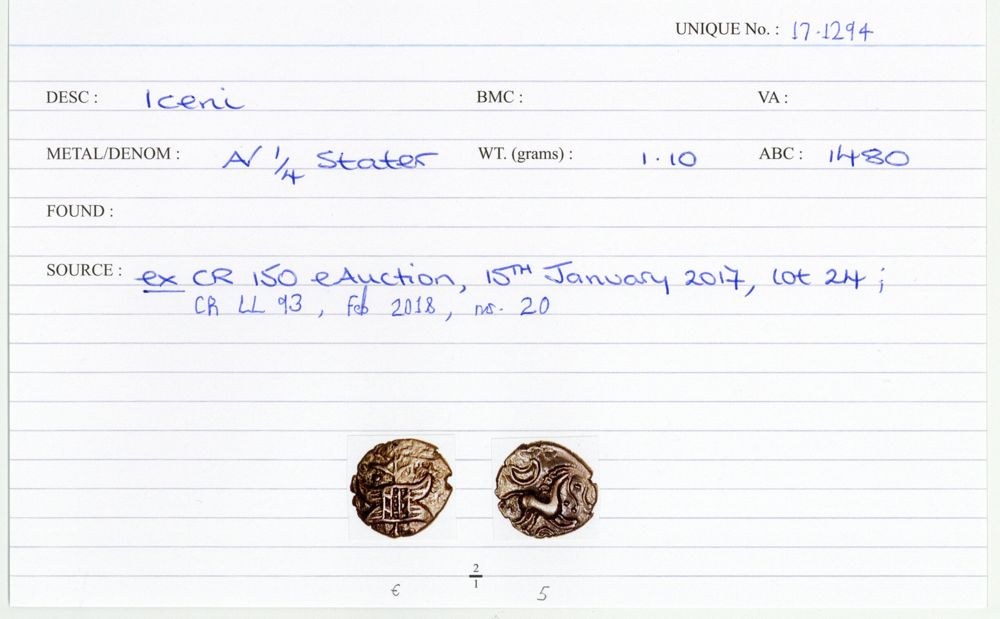 UNIQUE No. : 17.1294
DESC : Iceni BMC : VA :
METAL/DENOM : A/ 1/4 Stater WT. (grams) : 1.10 ABC : 1480
FOUND :
SOURCE : ex CR 150 eAuction, 15TH January 2017, lot 24 ;
CR LL 93, Feb 2018, no. 20
2/1
€ 5